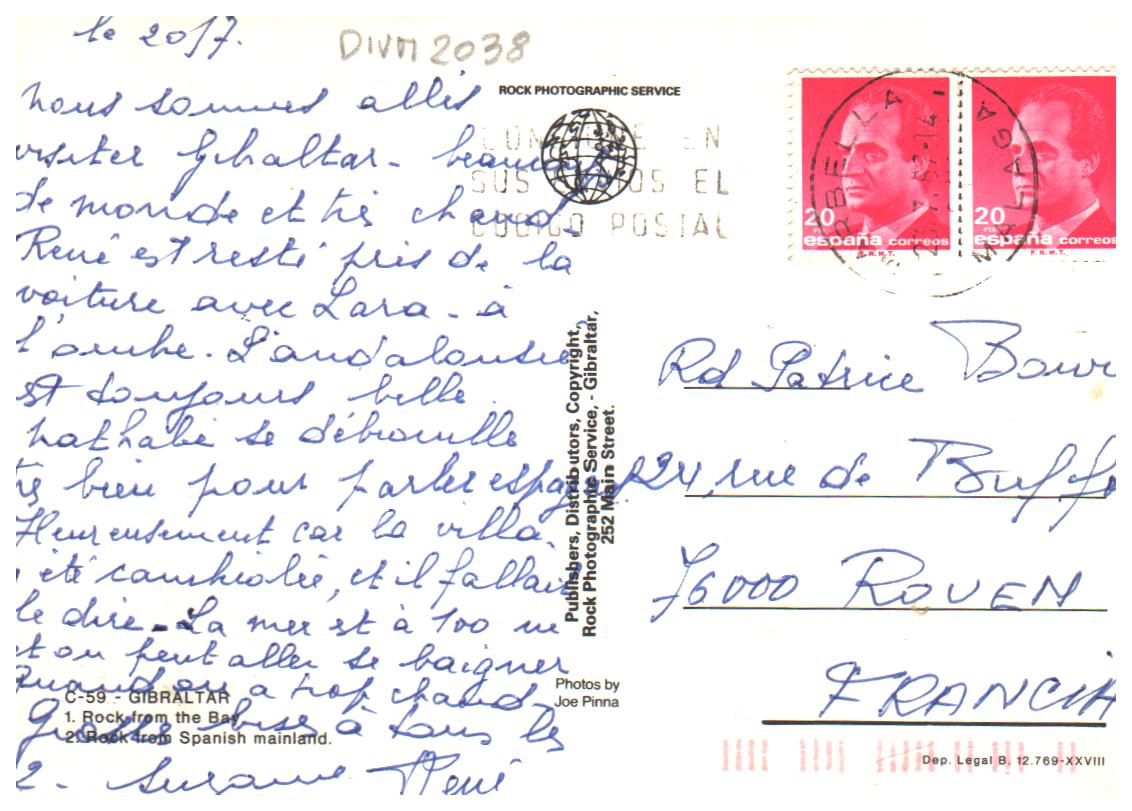 le 20/7.
DIVM 2038
nous sommes allés
visiter Gibraltar - beaucoup
de monde et très chaud.
René est resté près de la
voiture avec Lara - à
l'ombre. L'andalousie
est toujours belle.
nathalie se débrouille
très bien pour parler espagnol
Heureusement car la villa
a été cambriolée, et il fallait
le dire - La mer est à 100 m
et on peut aller se baigner
quand on a trop chaud -
Grosses bises à tous les
2 - Suzanne René
ROCK PHOTOGRAPHIC SERVICE
EN
SUS EL
CODIGO POSTAL
MARBELLA
MALAGA
20 PTA
españa correos
F.N.M.T.
20 PTA
españa correos
F.N.M.T.
Publishers, Distributors, Copyright,
Rock Photographic Service, - Gibraltar,
252 Main Street.
Rd Patrice
24, rue de Buff
76000 ROUEN
FRANCIA
Photos by
Joe Pinna
C-59 - GIBRALTAR
1. Rock from the Bay
2. Rock from Spanish mainland.
Dep. Legal B. 12.769-XXVIII